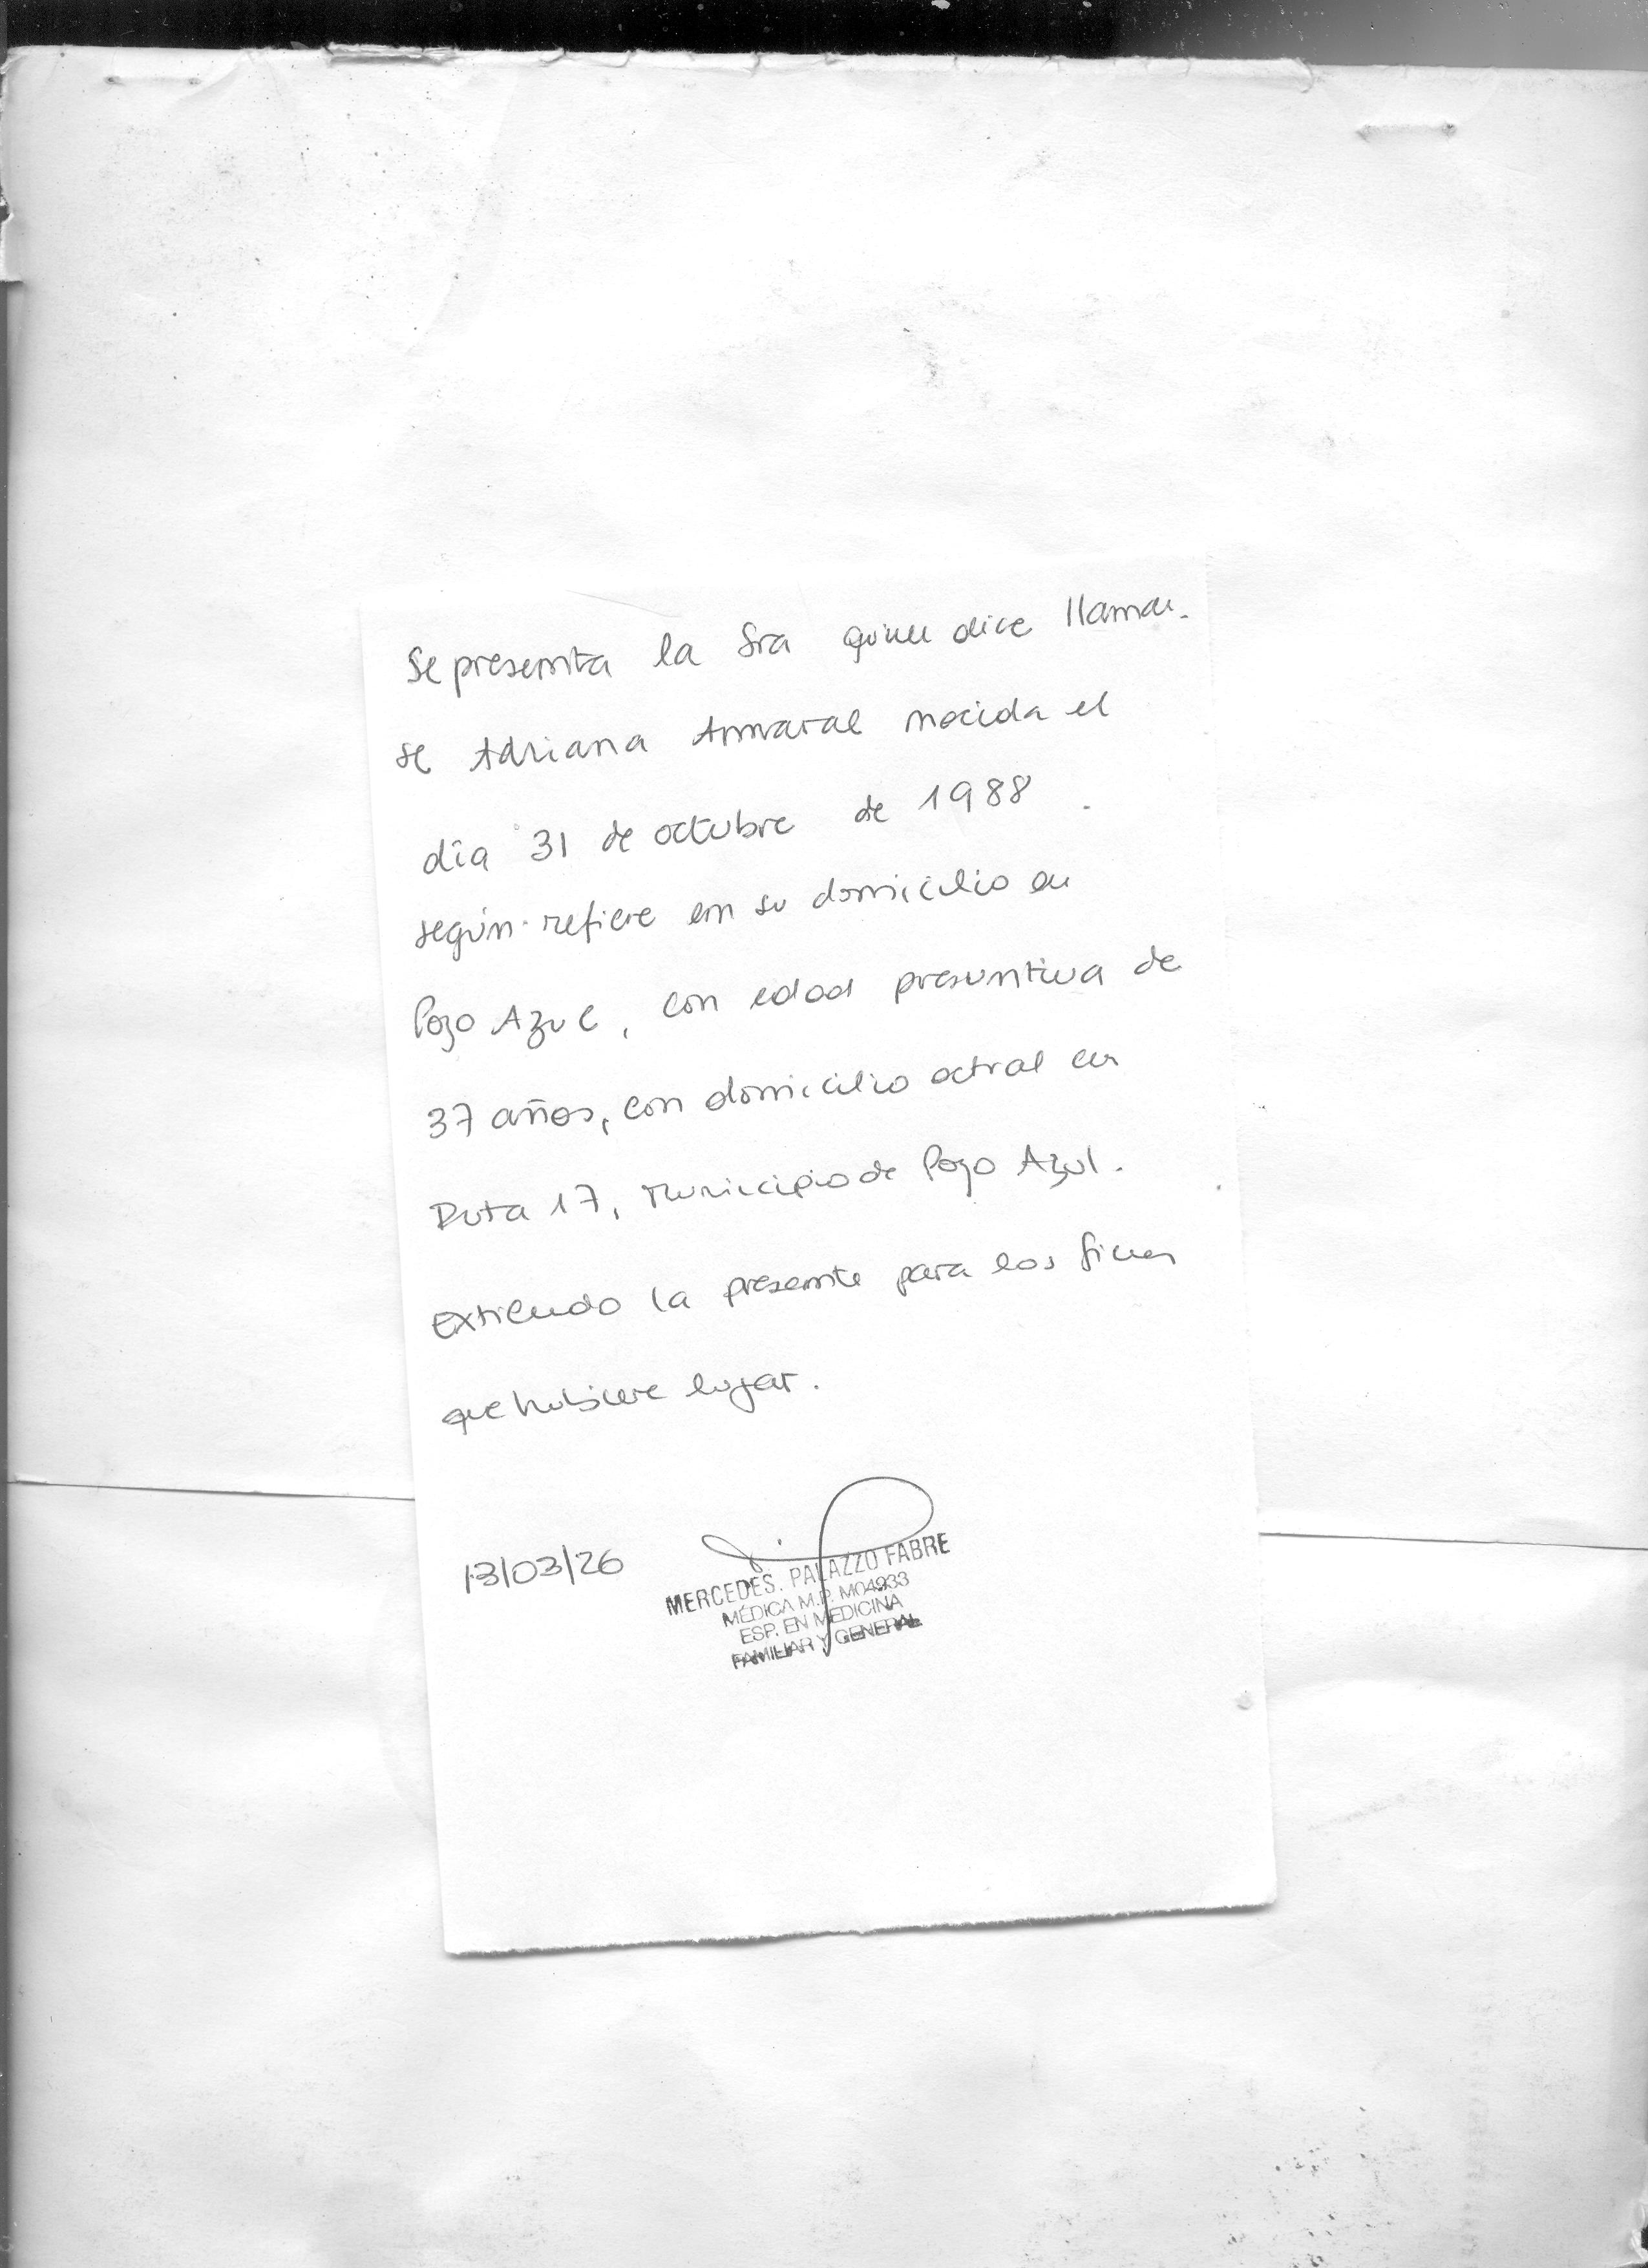 Se presenta la Sra quien dice llamar-
se Adriana Amaral nacida el
día 31 de octubre de 1988.
según refiere en su domicilio en
Pozo Azul, con edad presuntiva de
37 años, con domicilio actual en
Ruta 17, Municipio de Pozo Azul.
Extiendo la presente para los fines
que hubiere lugar.
13/03/26
MERCEDES. PALAZZO FABRE
MÉDICA M.P. M04933
ESP. EN MEDICINA
FAMILIAR Y GENERAL